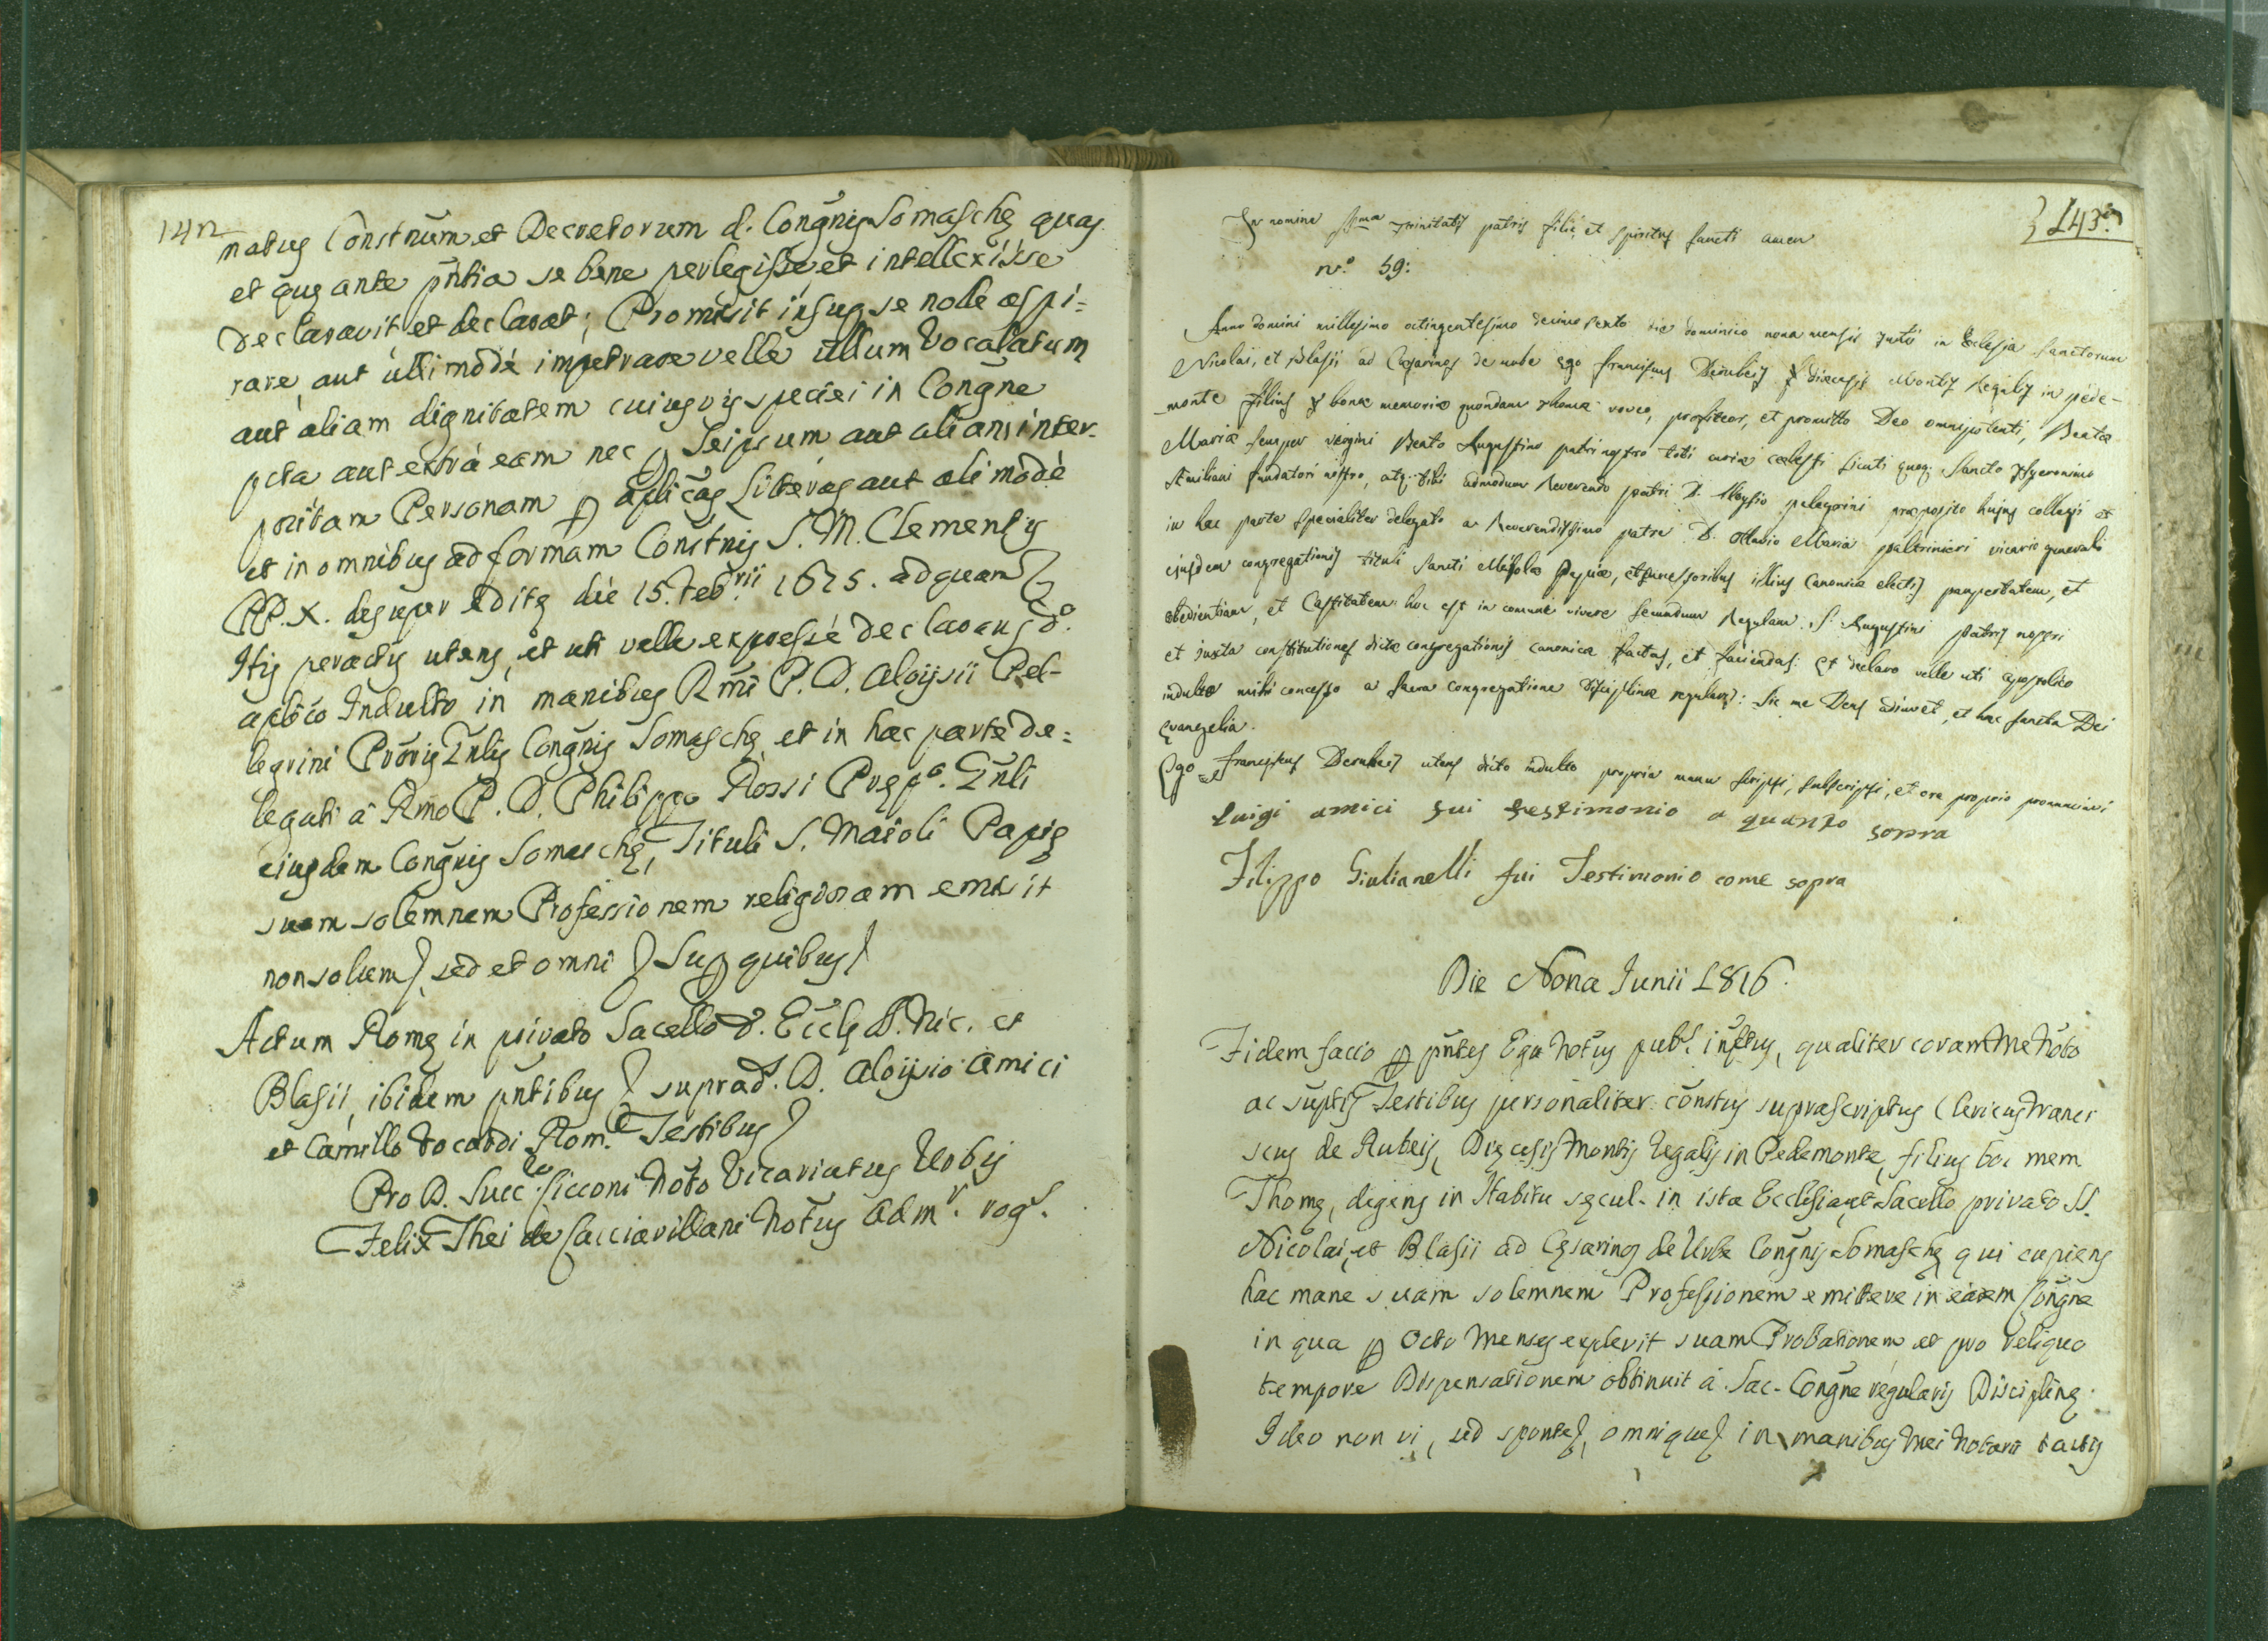 142
natus Constnum et Decretorum d. Congnis Somaschę quas
et quę ante pntia se bene perlegisse et intellexisse
declaravit et declarat; Promisit insup se nolle aspi=
rare, aut ullimode impetrare velle ullum Vocalatum
aut aliam dignitatem cuiusvis speciei in Congne
pcta aut extrà eam nec p Seipsum aut aliam inter-
positam Personam p aplicas Litteras aut ali modè
et in omnibus ad formam Constnis S. M. Clementis
PP. X. desuper editę die 15. Feb.rii 1675. ad quam
Hijs peractis utens, et uti velle expressè declarans do.
aplico Indulto in manibus Rmi P. D. Aloijsii Pel-
legrini Proris Gnlis Congnis Somaschę, et in hac parte de=
legati à Rmo P. D. Philippo Rossi Pręp.o Gnli
eiusdem Congnis Somaschę, Tituli S. Maioli Papię
suam solemnem Professionem religiosam emisit
non solum, sed et omni Sup quibus
Actum Romę in privato Sacello d. Eccle SS. Nic. et
Blasii, ibidem pntibus suprad. D. Aloijsio Amici
et Camillo Vocardi Rom. Testibus
Pro D. Succ. Sicconi Noto Vicariatus Urbis
Felix Thei de Cacciavillani Notus Adm.r rog.s
143
In nomine ssma Trinitatis patris filii et spiritus sancti amen
n.o 59:
Anno domini millesimo octingentesimo decimo sexto die dominico nona mensis Junii in Eclesia sanctorum
Nicolai, et Blasii ad Cæsarinos de urbe ego franciscus Derubeis diæcesis Montis Regalis in pede-
monte filius bonæ memoriæ quondam thomæ voveo, profiteor, et promitto Deo omnipotenti, Beatæ
Mariæ semper vergini Beato Augustino patri nostro toti curiæ cælesti sicuti quoq; Sancto Hyeronimo
Æmiliani fundatori nostro, atq; tibi admodum Reverendo patri D. Aloysio pelegrini præposito hujus collegii et
in hac parte specialiter delegato a Reverendissimo patre D. Ottavio Maria paltrinieri vicario generali
ejusdem congregationis tituli Sancti Mayolæ Papiæ, et successoribus illius Canonice electis paupertatem, et
obedientiam, et Castitatem: hoc est in comune vivere secundum Regulam S. Augustini Patris nostri
et juxta constitutiones dictæ congregationis canonicæ factas, et faciendas: et declaro velle uti apostolico
indulto mihi concesso a sacra congregatione Disciplinæ regularis: Sic me Deus adiuvet, et hæc sancta Dei
evangelia.
Ego franciscus Derubeis utens dicto indulto propria manu scripsi, subscripsi, et ore proprio pronunciavi
Luigi amici fui testimonio a quanto sopra
Filippo Giulianelli fui Testimonio come sopra
Die Nona Junii 1816.
Fidem facio p pntes Ego Notus pub.s infrtus, qualiter coram Me Noto
ac suptis Testibus personaliter constus suprascriptus Clericus Franci
scus de Rubeis, Dięcesis Montis Regalis in Pedemonte, filius bo: mem
Thomę, degens in Habitu sęcul. in ista Ecclesia, et Sacello privato SS.
Nicolai, et Blasii ad Cęsarinos de Urbe Congnis Somaschę qui cupiens
hac mane suam solemnem Professionem emittere in eadem Congne
in qua p octo Menses explevit suam Probationem et pro reliquo
tempore Dispensationem obtinuit à Sac. Congne regularis Disciplinę.
Ideo non vi, sed sponte, omnique in manibus mei Notarii tactis